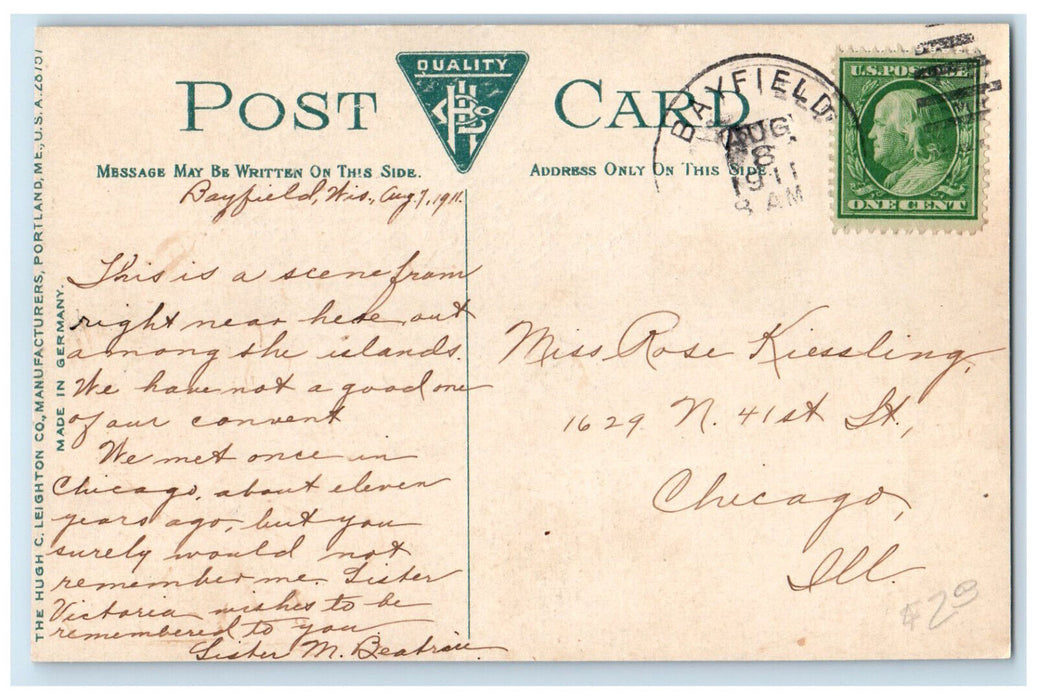 QUALITY
POST CARD
MESSAGE MAY BE WRITTEN ON THIS SIDE.
ADDRESS ONLY ON THIS SIDE.
BAYFIELD
AUG
8
1911
8 AM
U.S. POSTAGE
ONE CENT
Bayfield, Wis., Aug 7, 1911.
This is a scene from
right near here, out
among the islands.
We have not a good one
of our convent
We met once in
Chicago, about eleven
years ago, but you
surely would not
remember me. Sister
Victoria wishes to be
remembered to you.
Sister M. Beatrice
Miss Rose Kiessling,
1629 N. 41st St.,
Chicago,
Ill.
THE HUGH C. LEIGHTON CO., MANUFACTURERS, PORTLAND, ME., U.S.A. 28757
MADE IN GERMANY.